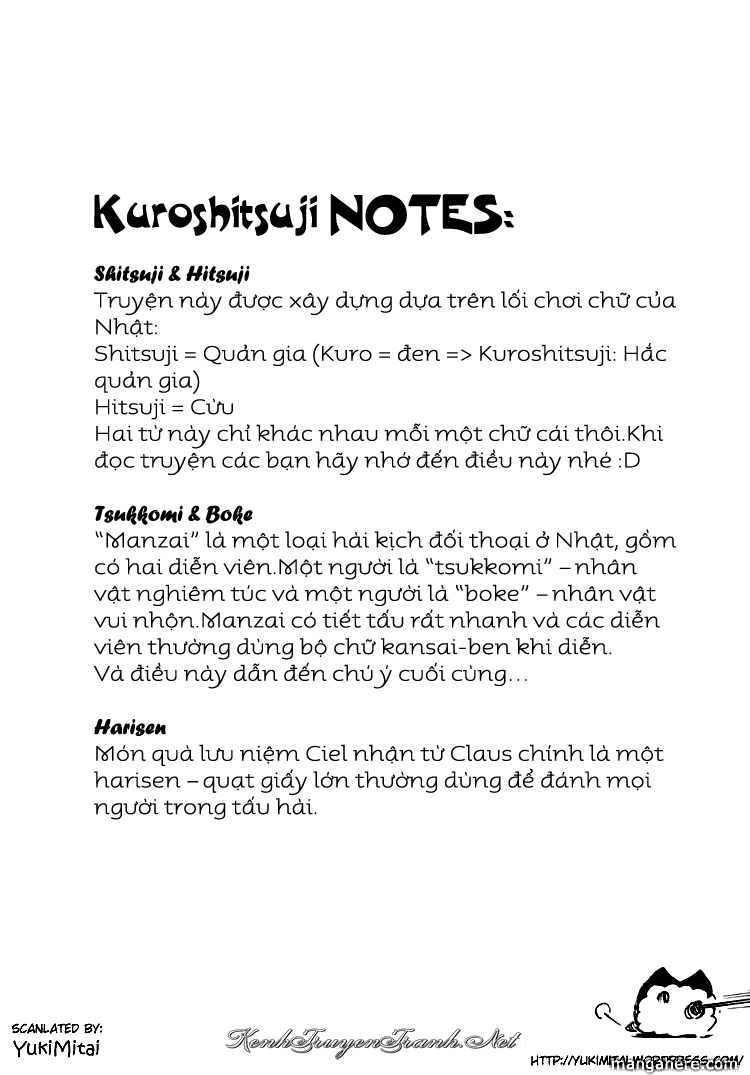 Kuroshitsuji NOTES:
Shitsuji & Hitsuji
Truyện này được xây dựng dựa trên lối chơi chữ của
Nhật:
Shitsuji = Quản gia (Kuro = đen => Kuroshitsuji: Hắc
quản gia)
Hitsuji = Cừu
Hai từ này chỉ khác nhau mỗi một chữ cái thôi.Khi
đọc truyện các bạn hãy nhớ đến điều này nhé :D
Tsukkomi & Boke
“Manzai” là một loại hài kịch đối thoại ở Nhật, gồm
có hai diễn viên.Một người là “tsukkomi” – nhân
vật nghiêm túc và một người là “boke” – nhân vật
vui nhộn.Manzai có tiết tấu rất nhanh và các diễn
viên thường dùng bộ chữ kansai-ben khi diễn.
Và điều này dẫn đến chú ý cuối cùng...
Harisen
Món quà lưu niệm Ciel nhận từ Claus chính là một
harisen – quạt giấy lớn thường dùng để đánh mọi
người trong tấu hài.
SCANLATED BY:
YukiMitai
KenhTruyenTranh.Net
HTTP://YUKIMITAI.WORDPRESS.COM/
mangahere.com